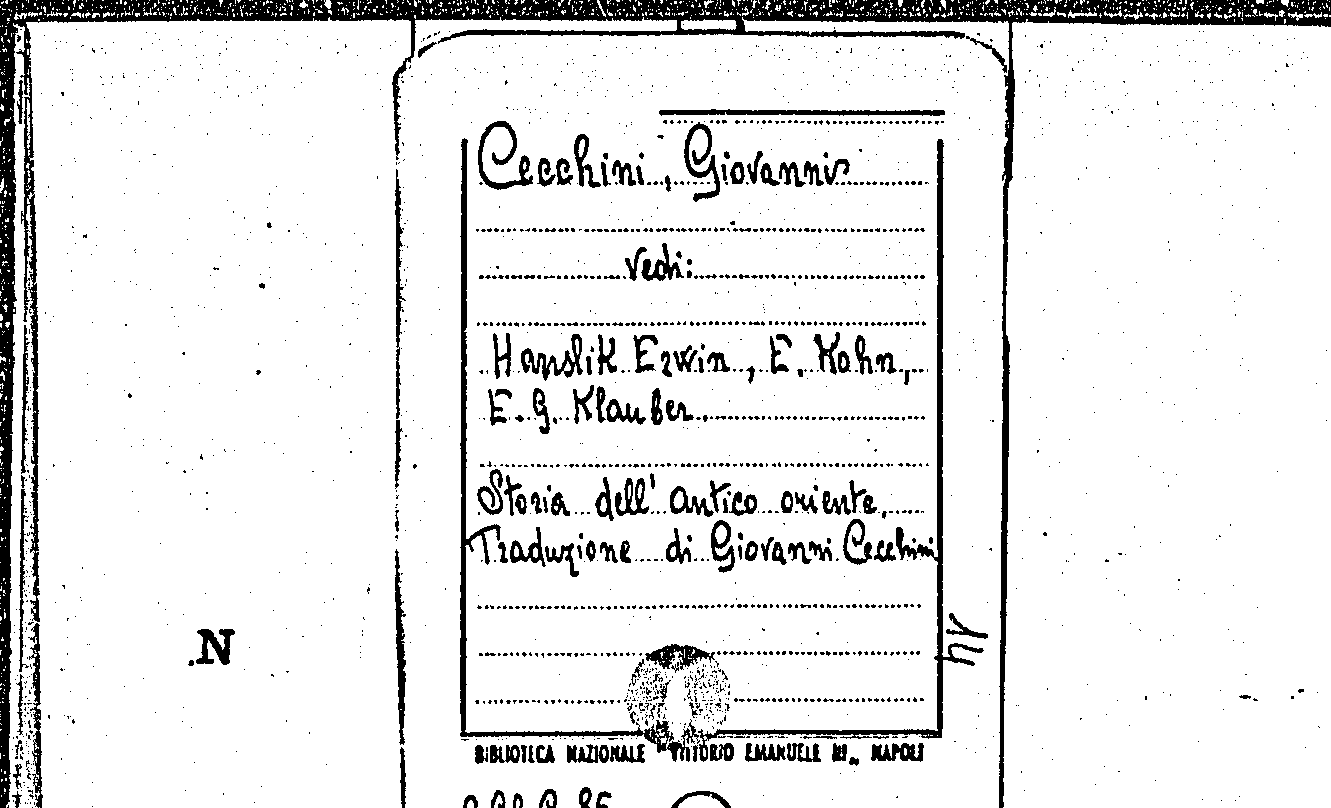 Cecchini, Giovanni
vedi:
Hanslik Erwin, E. Kohn,
E. G. Klauber.
Storia dell' antico oriente.
Traduzione di Giovanni Cecchini
.N
BIBLIOTECA NAZIONALE "VITTORIO EMANUELE III„ NAPOLI